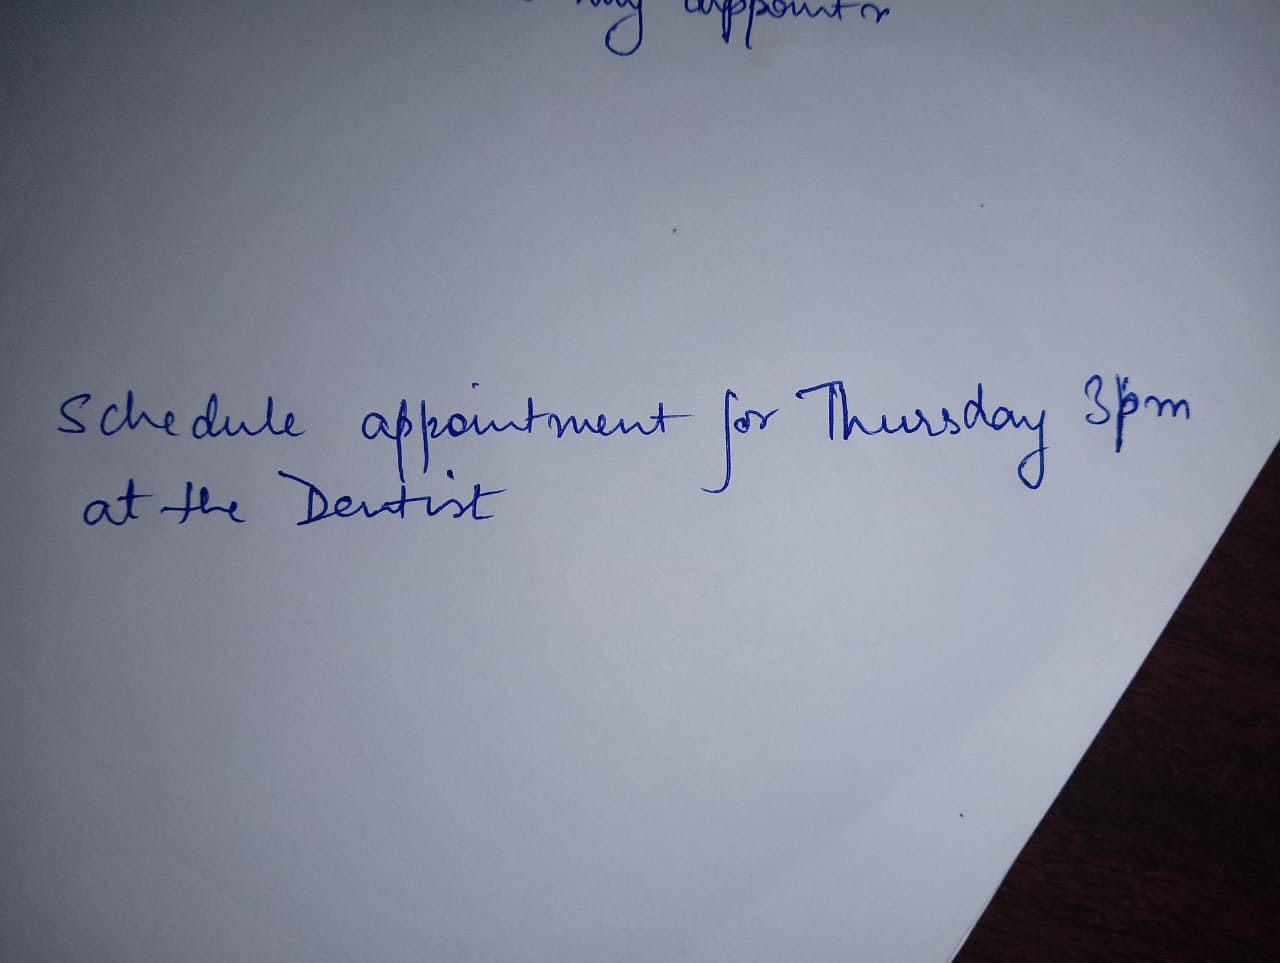 Schedule appointment for Thursday 3pm
at the Dentist